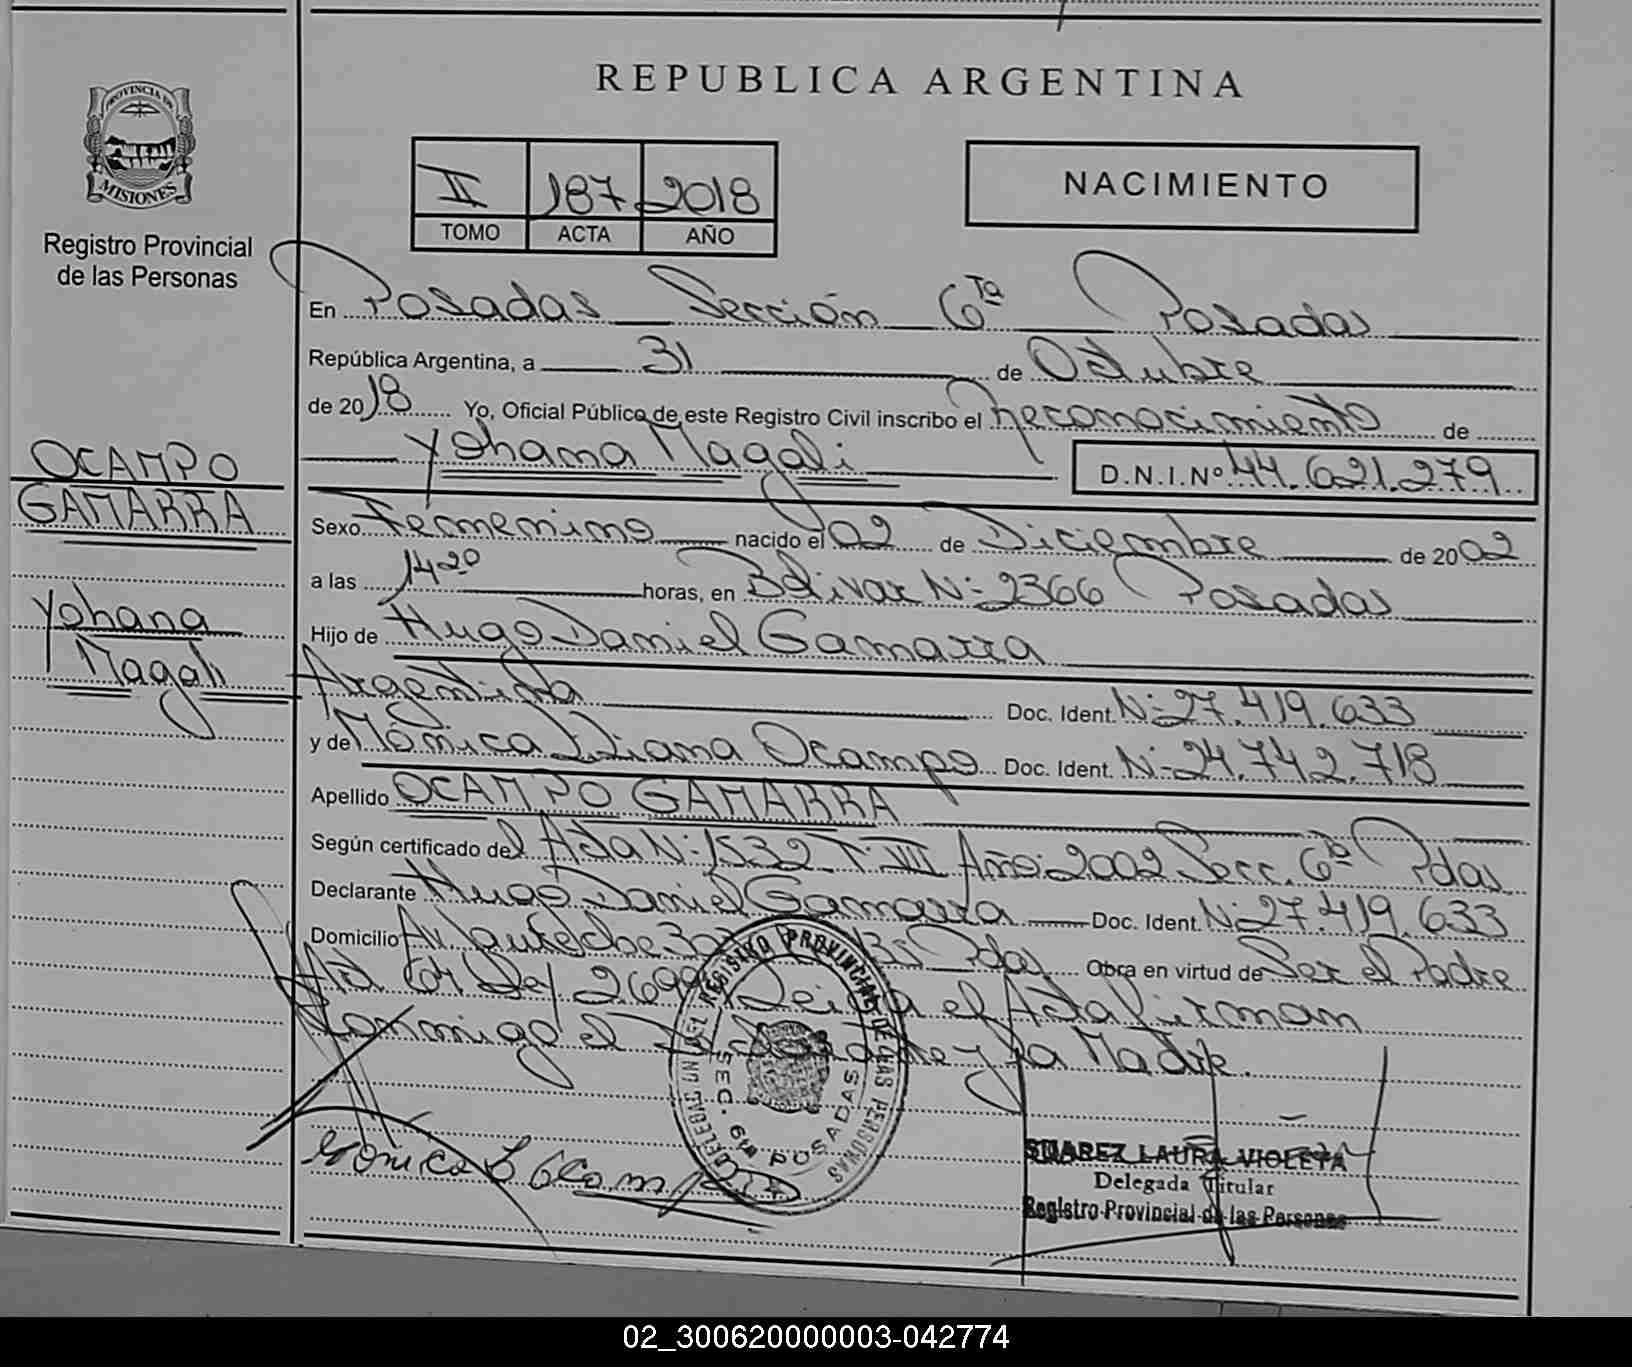 REPUBLICA ARGENTINA
PROVINCIA DE
MISIONES
Registro Provincial
de las Personas
II 187 2018
TOMO ACTA AÑO
NACIMIENTO
En Posadas Sección 6ta Posadas
República Argentina, a 31 de Octubre
de 2018 Yo, Oficial Público de este Registro Civil inscribo el Reconocimiento de
Yohana Magali D.N.I.Nº 44.621.279
OCAMPO
GAMARRA
Yohana
Magali
Sexo Femenino nacido el 02 de Diciembre de 2002
a las 14 20 horas, en Bolivar N: 2366 Posadas
Hijo de Hugo Daniel Gamarra
Argentina Doc. Ident. N: 27.419.633
y de Mónica Liliana Ocampo Doc. Ident. N: 24.742.718
Apellido OCAMPO GAMARRA
Según certificado del Acta N: 1532 T: VII Año: 2002 Secc. 6ta Pdas
Declarante Hugo Daniel Gamarra Doc. Ident. N: 27.419.633
Domicilio Av. Pdas Obra en virtud de Ser el Padre
Ley 26994 Leida el Acta firman
Conmigo el y la Madre.
REGISTRO PROVINCIAL DE LAS PERSONAS
SEC. 6ta POSADAS
Mónica L Ocampo
SUAREZ LAURA VIOLETA
Delegada Titular
Registro Provincial de las Personas
02_300620000003-042774